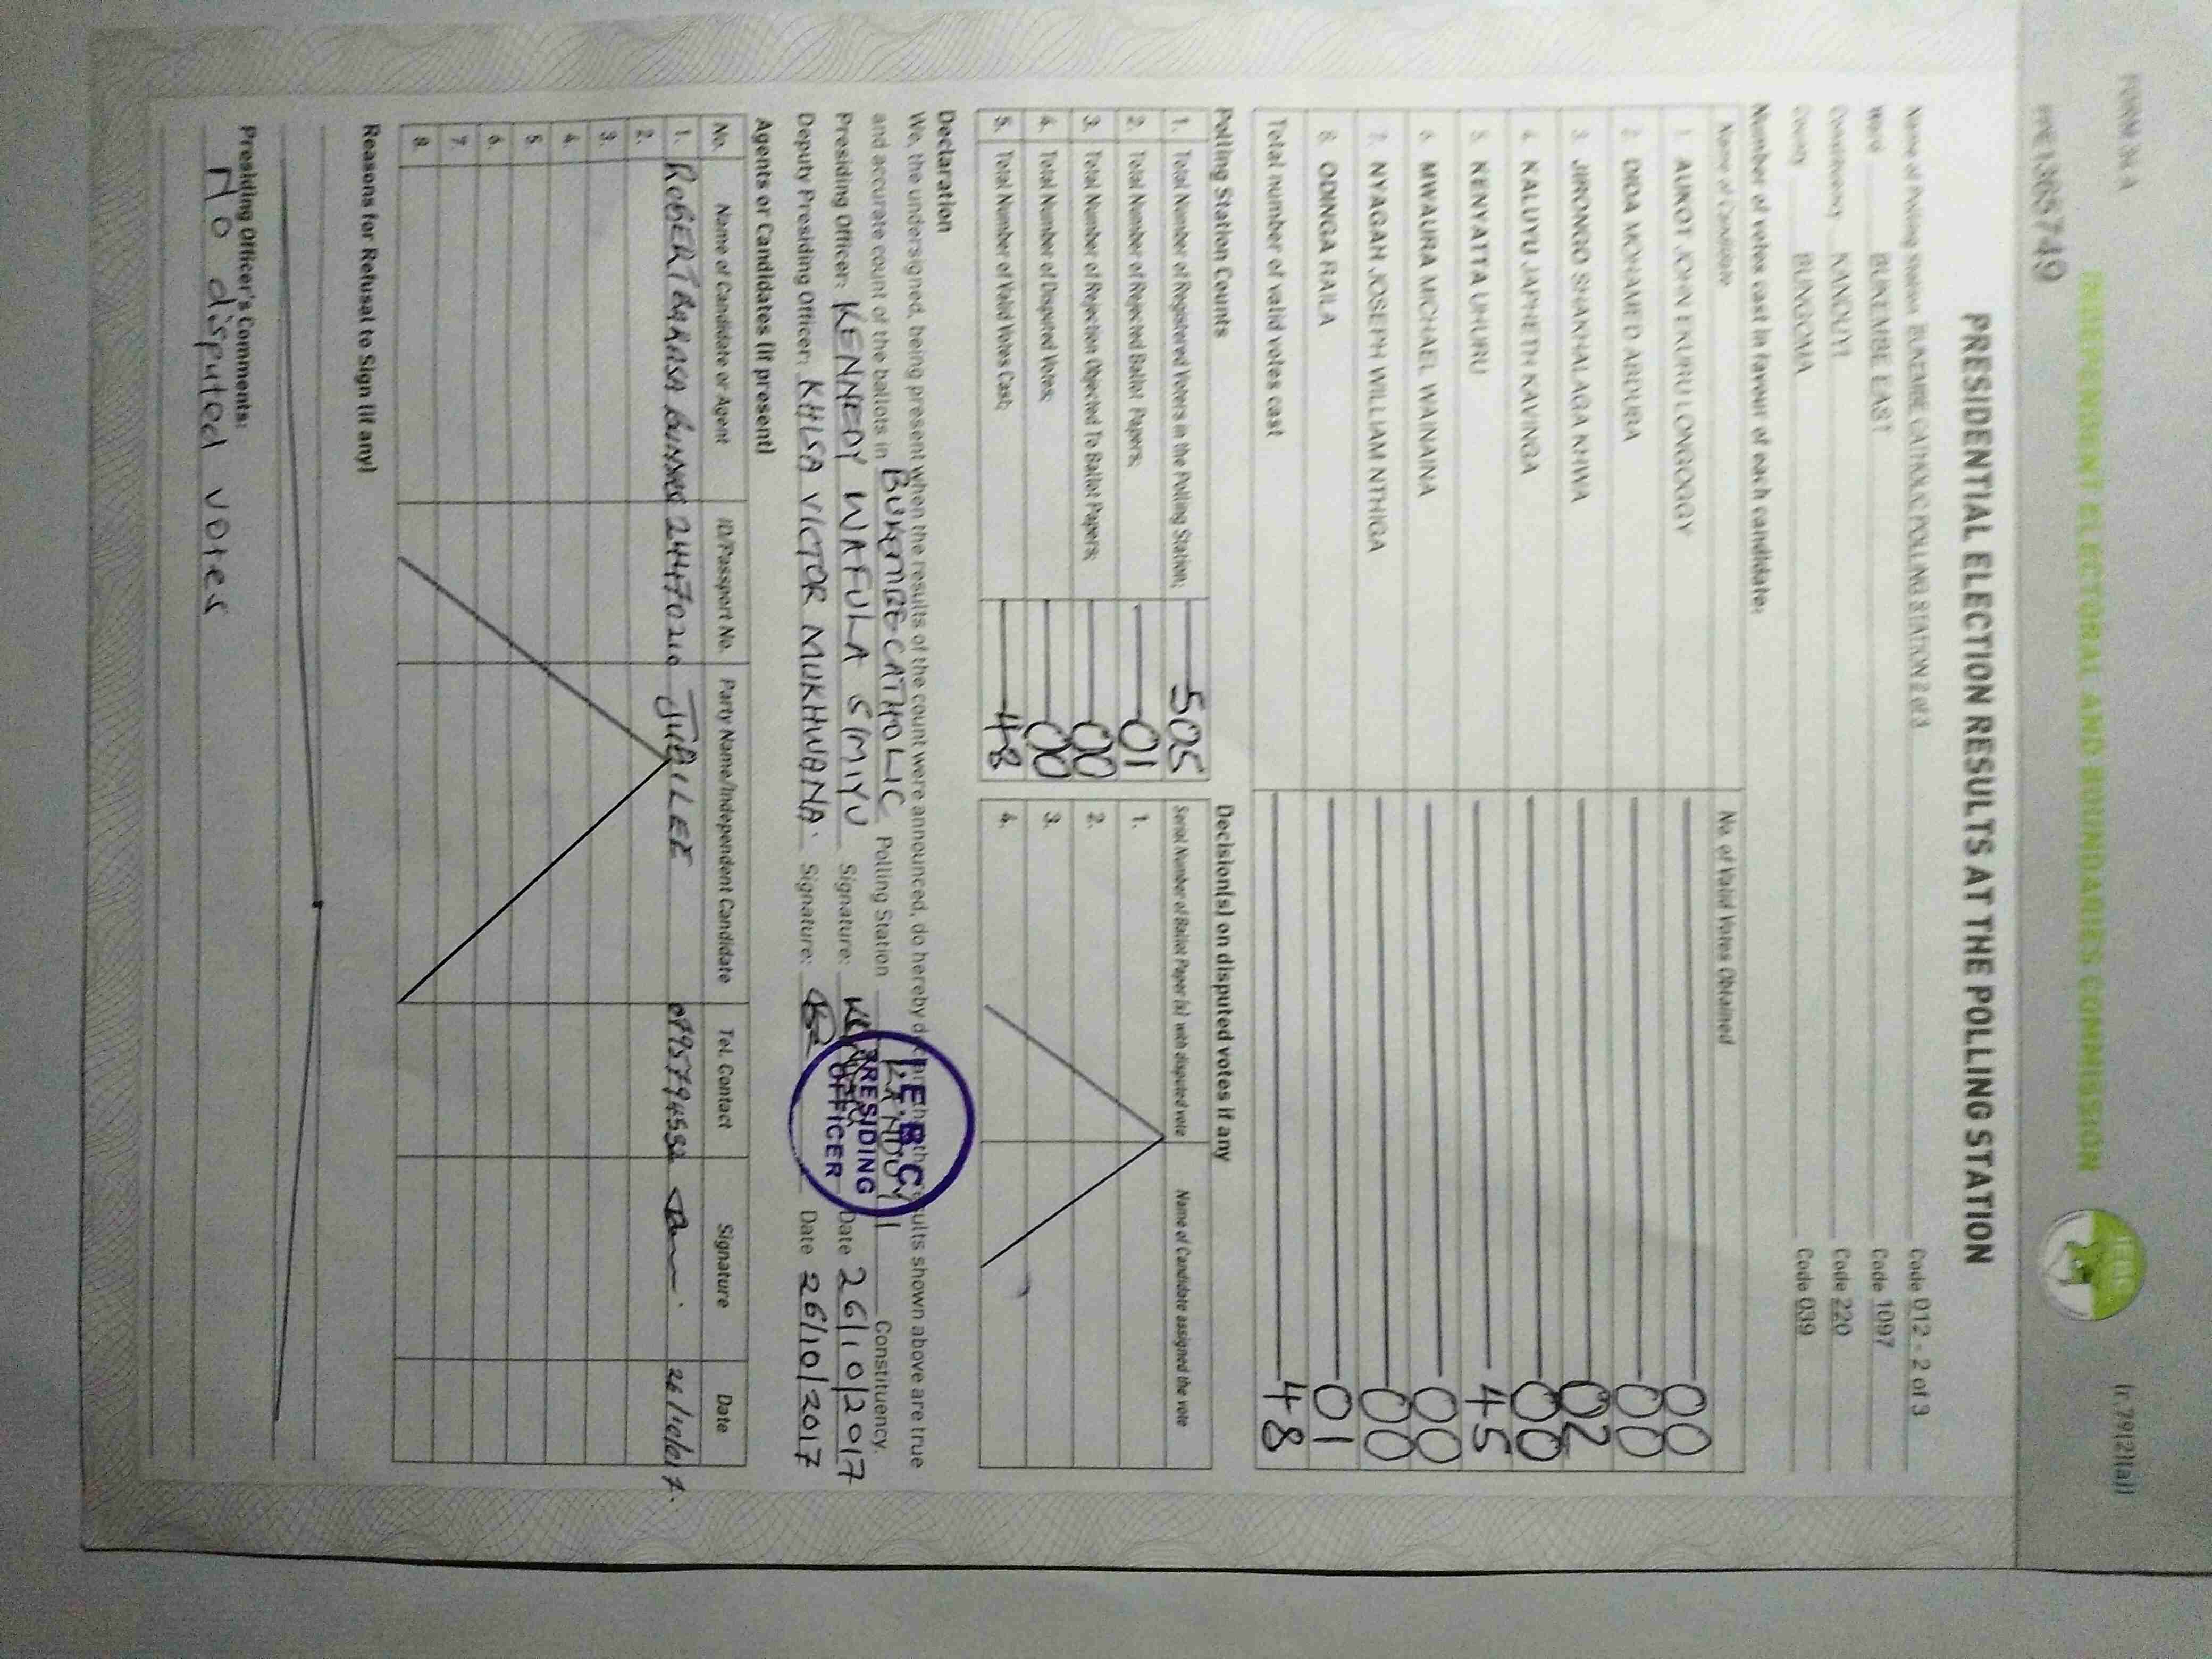 FORM 34 A
(r.79(2)(a))
INDEPENDENT ELECTORAL AND BOUNDARIES COMMISSION
IEBC
PRESIDENTIAL ELECTION RESULTS AT THE POLLING STATION
Name of Polling Station BUKEMBE CATHOLIC POLLING STATION 2 of 3 Code 012 - 2 of 3
Ward BUKEMBE EAST Code 1097
Constituency KANDUYI Code 220
County BUNGOMA Code 039
Number of votes cast in favour of each candidate:
Name of Candidate No. of Valid Votes Obtained
1. AUKOT JOHN EKURU LONGOGGY 00
2. DIDA MOHAMED ABDUBA 00
3. JIRONGO SHAKHALAGA KHWA 02
4. KALUYU JAPHETH KAVINGA 00
5. KENYATTA UHURU 45
6. MWAURA MICHAEL WAINAINA 00
7. NYAGAH JOSEPH WILLIAM NTHIGA 00
8. ODINGA RAILA 01
Total number of valid votes cast 48
Polling Station Counts
1. Total Number of Registered Voters in the Polling Station; 505
2. Total Number of Rejected Ballot Papers; 01
3. Total Number of Rejection Objected To Ballot Papers; 00
4. Total Number of Disputed Votes; 00
5. Total Number of Valid Votes Cast; 48
Decision(s) on disputed votes if any
Serial Number of Ballot Paper (s) with disputed vote Name of Candidate assigned the vote
1.
2.
3.
4.
Declaration
We, the undersigned, being present when the results of the count were announced, do hereby declare that the results shown above are true
and accurate count of the ballots in BUKEMBE CATHOLIC Polling Station KANDUYI Constituency.
Presiding Officer: KENNEDY WAFULA SIMIYU Signature: Date 26/10/2017
Deputy Presiding Officer: KHISA VICTOR MUKHWANA. Signature: Date 26/10/2017
I.E.B.C
PRESIDING
OFFICER
Agents or Candidates (if present)
No. Name of Candidate or Agent ID/Passport No. Party Name/Independent Candidate Tel. Contact Signature Date
1. ROBERT JUBILEE
2.
3.
4.
5.
6.
7.
8.
Reasons for Refusal to Sign (if any)
Presiding Officer's Comments:
NO disputed votes